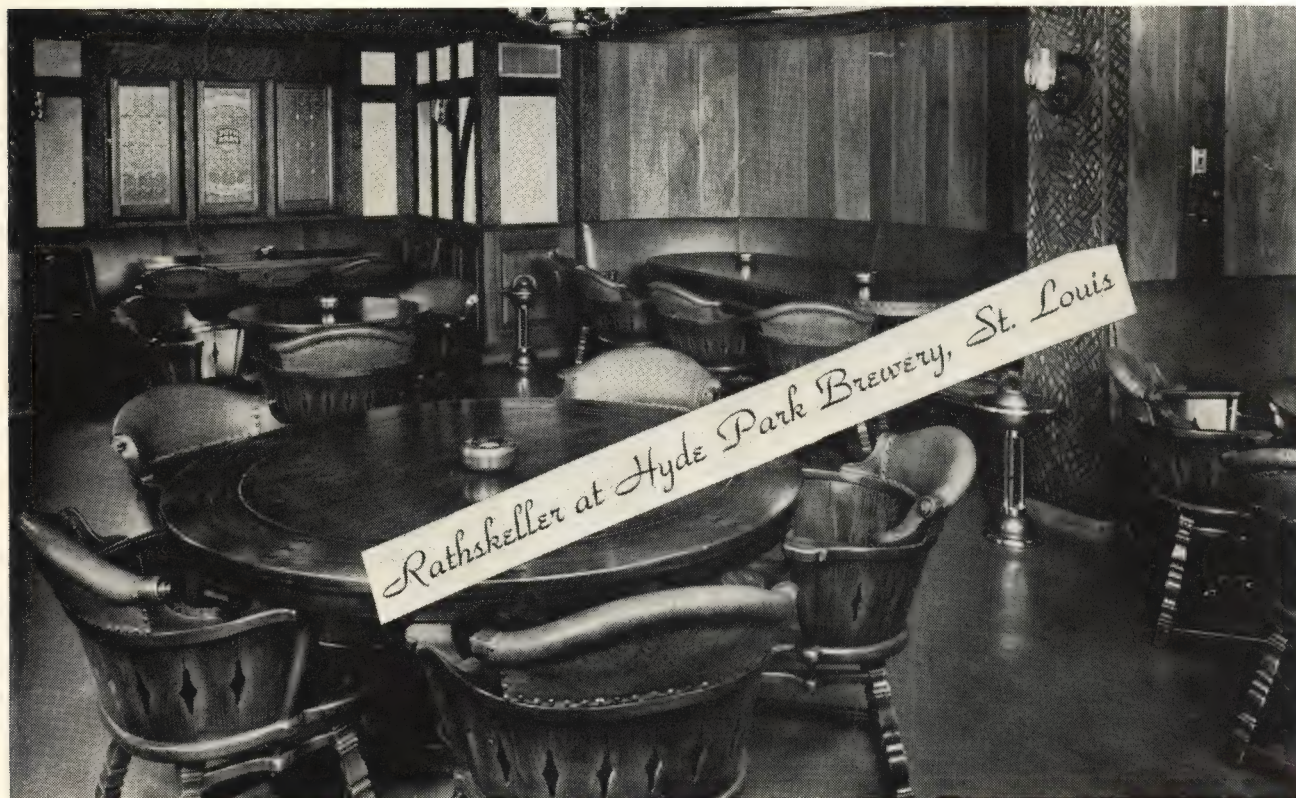 Rathskeller at Hyde Park Brewery, St. Louis